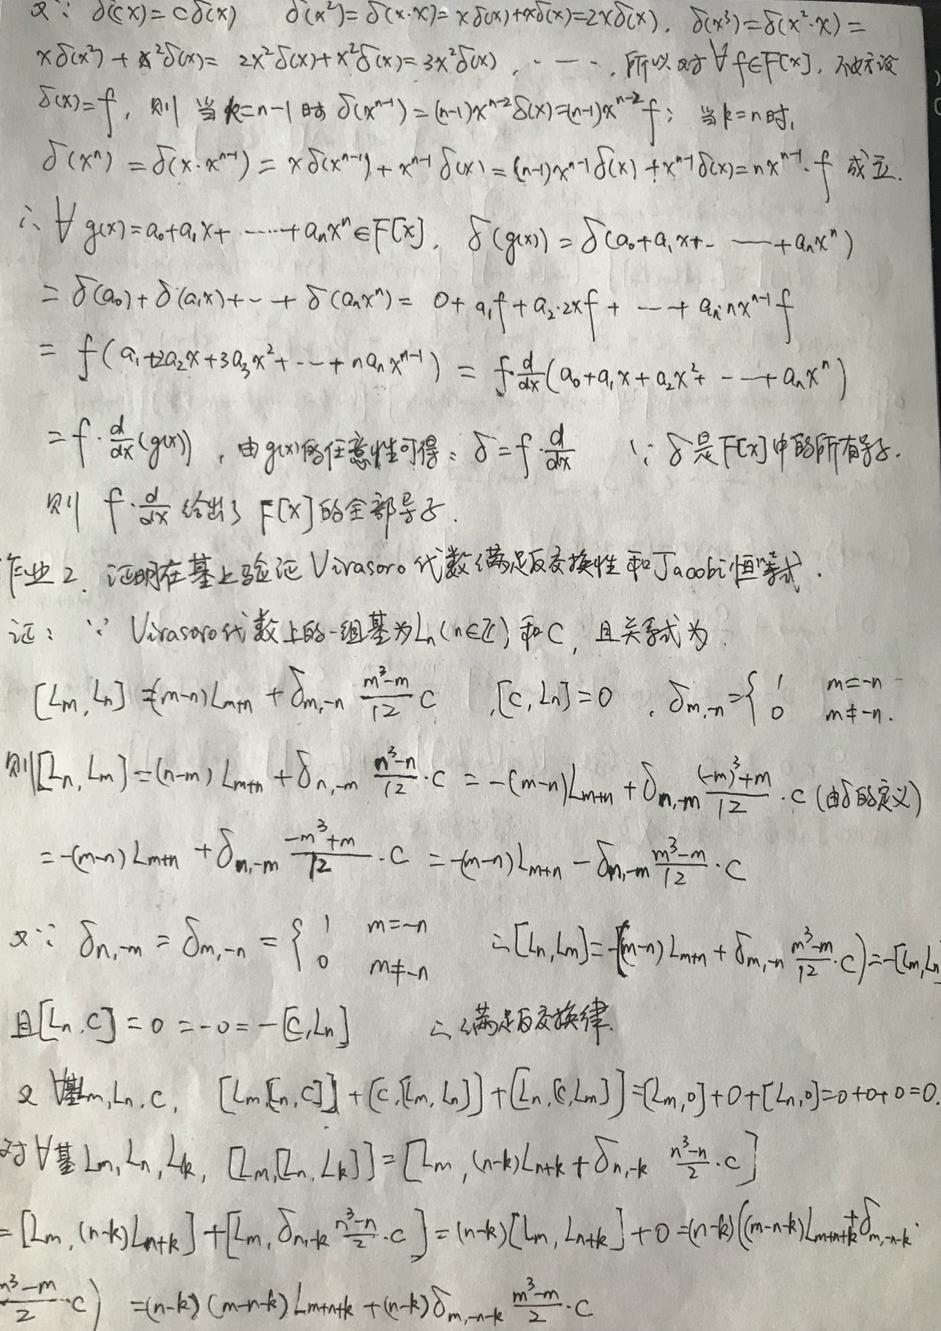 又∵ δ(cx)=cδ(x)  δ(x²)=δ(x·x)=xδ(x)+xδ(x)=2xδ(x), δ(x³)=δ(x²·x)=
xδ(x²)+x²δ(x)=2x²δ(x)+x²δ(x)=3x²δ(x), ……, 所以对∀f∈F[x], 不妨设
δ(x)=f, 则当k=n-1时 δ(xⁿ⁻¹)=(n-1)xⁿ⁻²δ(x)=(n-1)xⁿ⁻²f; 当k=n时,
δ(xⁿ)=δ(x·xⁿ⁻¹)=xδ(xⁿ⁻¹)+xⁿ⁻¹δ(x)=(n-1)xⁿ⁻¹δ(x)+xⁿ⁻¹δ(x)=nxⁿ⁻¹·f 成立.
∴∀g(x)=a₀+a₁x+……+aₙxⁿ∈F[x], δ(g(x))=δ(a₀+a₁x+……+aₙxⁿ)
=δ(a₀)+δ(a₁x)+…+δ(aₙxⁿ)=0+a₁f+a₂·2xf+……+aₙ·nxⁿ⁻¹f
=f(a₁+2a₂x+3a₃x²+…+naₙxⁿ⁻¹)=f·d/dx(a₀+a₁x+a₂x²+……+aₙxⁿ)
=f·d/dx(g(x)), 由g(x)的任意性可得: δ=f·d/dx  ∵δ是F[x]中的所有导子.
则 f·d/dx 给出了F[x]的全部导子.
作业2. 证明在基上验证Virasoro代数满足反交换性和Jacobi恒等式.
证: ∵ Virasoro代数上的一组基为Lₙ(n∈Z)和C, 且关系式为
[Lₘ,Lₙ]=(m-n)Lₘ₊ₙ+δₘ,₋ₙ (m³-m)/12 C , [C,Lₙ]=0 , δₘ,₋ₙ={1 m=-n 0 m≠-n.
则[Lₙ,Lₘ]=(n-m)Lₘ₊ₙ+δₙ,₋ₘ (n³-n)/12·C=-(m-n)Lₘ₊ₙ+δₙ,₋ₘ ((-m)³+m)/12·C (由δ的定义)
=-(m-n)Lₘ₊ₙ+δₙ,₋ₘ (-m³+m)/12·C=-(m-n)Lₘ₊ₙ-δₙ,₋ₘ (m³-m)/12·C
又∵ δₙ,₋ₘ=δₘ,₋ₙ={1 m=-n 0 m≠-n ∴[Lₙ,Lₘ]=-((m-n)Lₘ₊ₙ+δₘ,₋ₙ (m³-m)/12·C)=-[Lₘ,Lₙ]
且[Lₙ,C]=0=-0=-[C,Lₙ] ∴满足反交换律.
又∀基Lₘ,Lₙ,C, [Lₘ,[Lₙ,C]]+[C,[Lₘ,Lₙ]]+[Lₙ,[C,Lₘ]]=[Lₘ,0]+0+[Lₙ,0]=0+0+0=0.
对∀基Lₘ,Lₙ,Lₖ, [Lₘ,[Lₙ,Lₖ]]=[Lₘ,(n-k)Lₙ₊ₖ+δₙ,₋ₖ (n³-n)/2·C]
=[Lₘ,(n-k)Lₙ₊ₖ]+[Lₘ,δₙ,₋ₖ (n³-n)/2·C]=(n-k)[Lₘ,Lₙ₊ₖ]+0=(n-k)((m-n-k)Lₘ₊ₙ₊ₖ+δₘ,₋ₙ₋ₖ·
(m³-m)/2·C)=(n-k)(m-n-k)Lₘ₊ₙ₊ₖ+(n-k)δₘ,₋ₙ₋ₖ (m³-m)/2·C